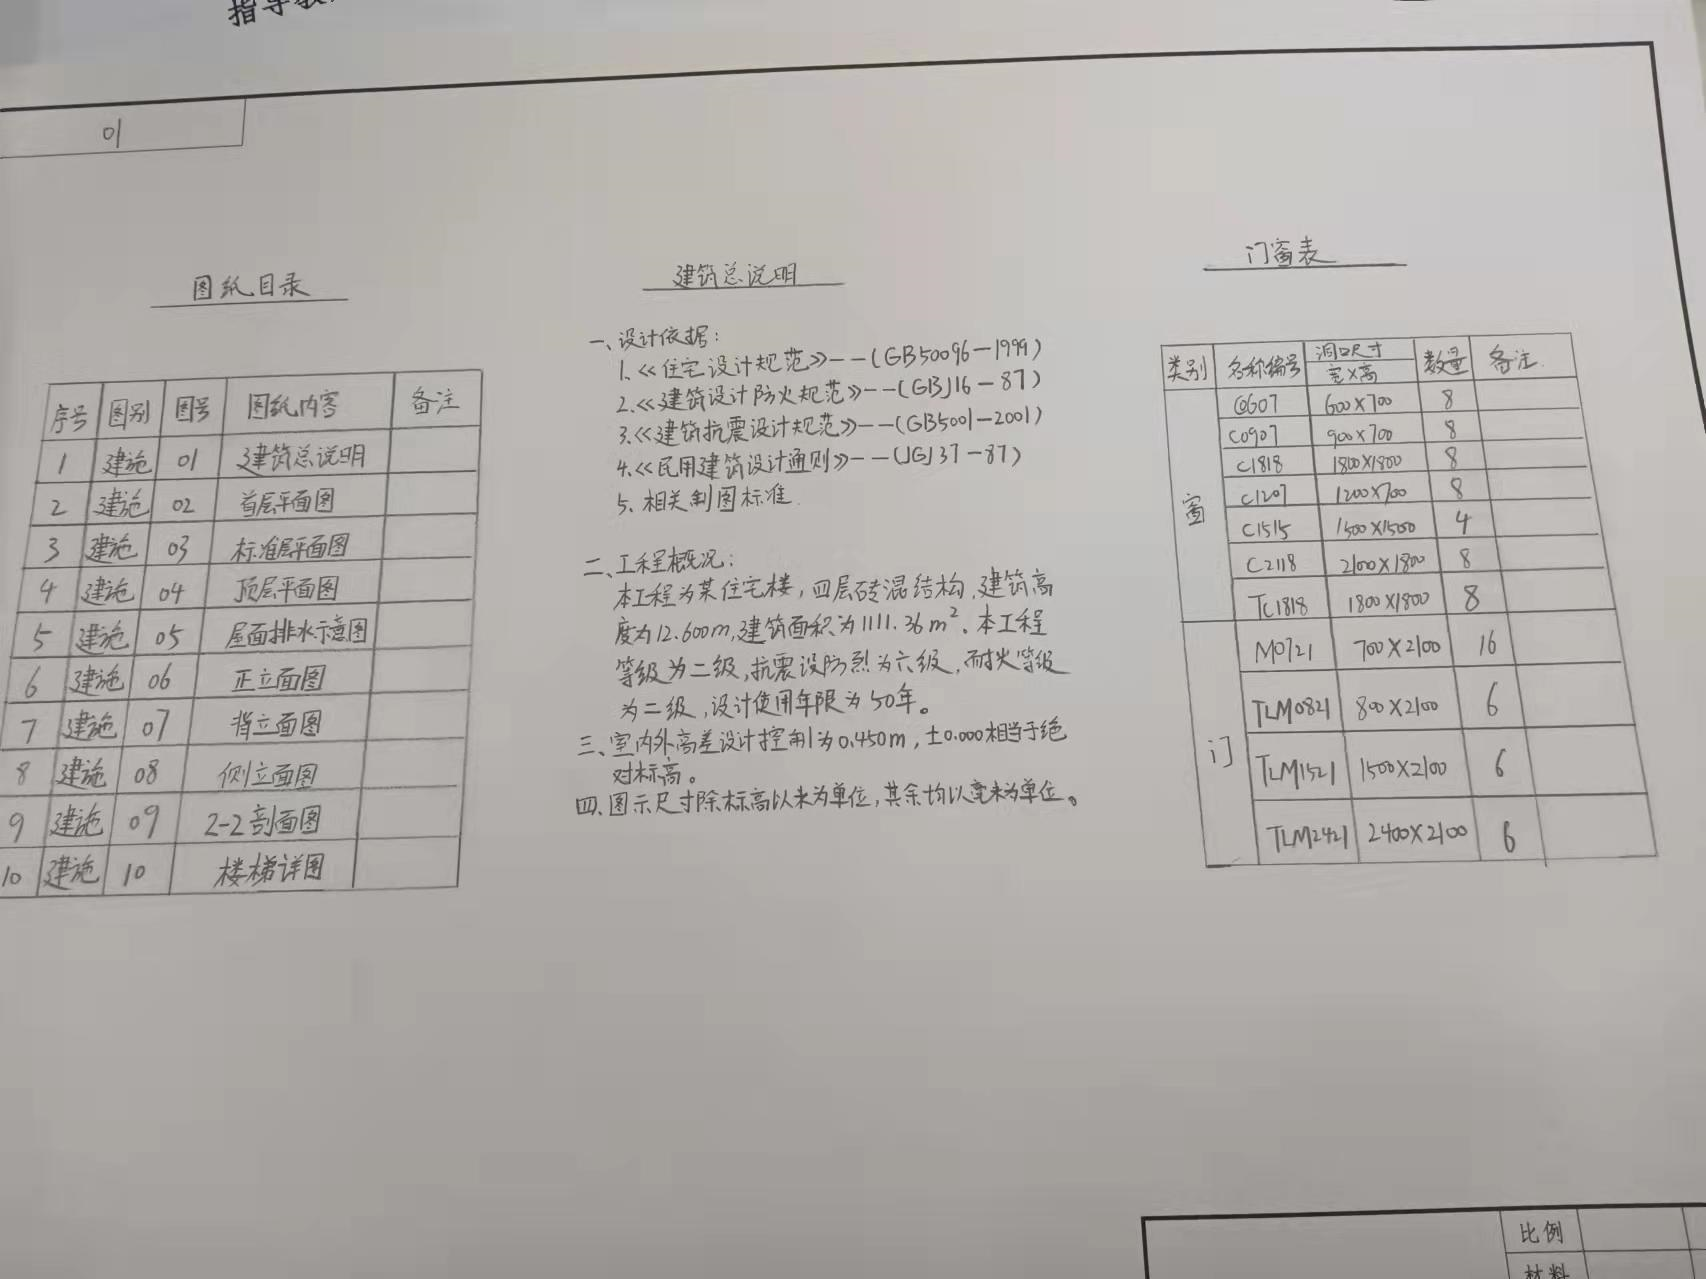 指导教
01
图纸目录
序号 图别 图号 图纸内容 备注
1 建施 01 建筑总说明
2 建施 02 首层平面图
3 建施 03 标准层平面图
4 建施 04 顶层平面图
5 建施 05 屋面排水示意图
6 建施 06 正立面图
7 建施 07 背立面图
8 建施 08 侧立面图
9 建施 09 2-2剖面图
10 建施 10 楼梯详图
建筑总说明
一、设计依据:
1、《住宅设计规范》--(GB50096-1999)
2、《建筑设计防火规范》--(GBJ16-87)
3、《建筑抗震设计规范》--(GB5001-2001)
4、《民用建筑设计通则》--(JGJ37-87)
5、相关制图标准.
二、工程概况:
本工程为某住宅楼,四层砖混结构,建筑高
度为12.600m,建筑面积为1111.36m²、本工程
等级为二级,抗震设防烈为六级,耐火等级
为二级,设计使用年限为50年。
三、室内外高差设计控制为0.450m,±0.000相当于绝
对标高。
四、图示尺寸除标高以米为单位,其余均以毫米为单位。
门窗表
类别 名称编号 洞口尺寸 数量 备注.
宽×高
窗
C0607 600×700 8
C0907 900×700 8
C1818 1800×1800 8
C1207 1200×700 8
C1515 1500×1500 4
C2118 2100×1800 8
TC1818 1800×1800 8
门
M0721 700×2100 16
TLM0821 800×2100 6
TLM1521 1500×2100 6
TLM2421 2400×2100 6
比例
材料